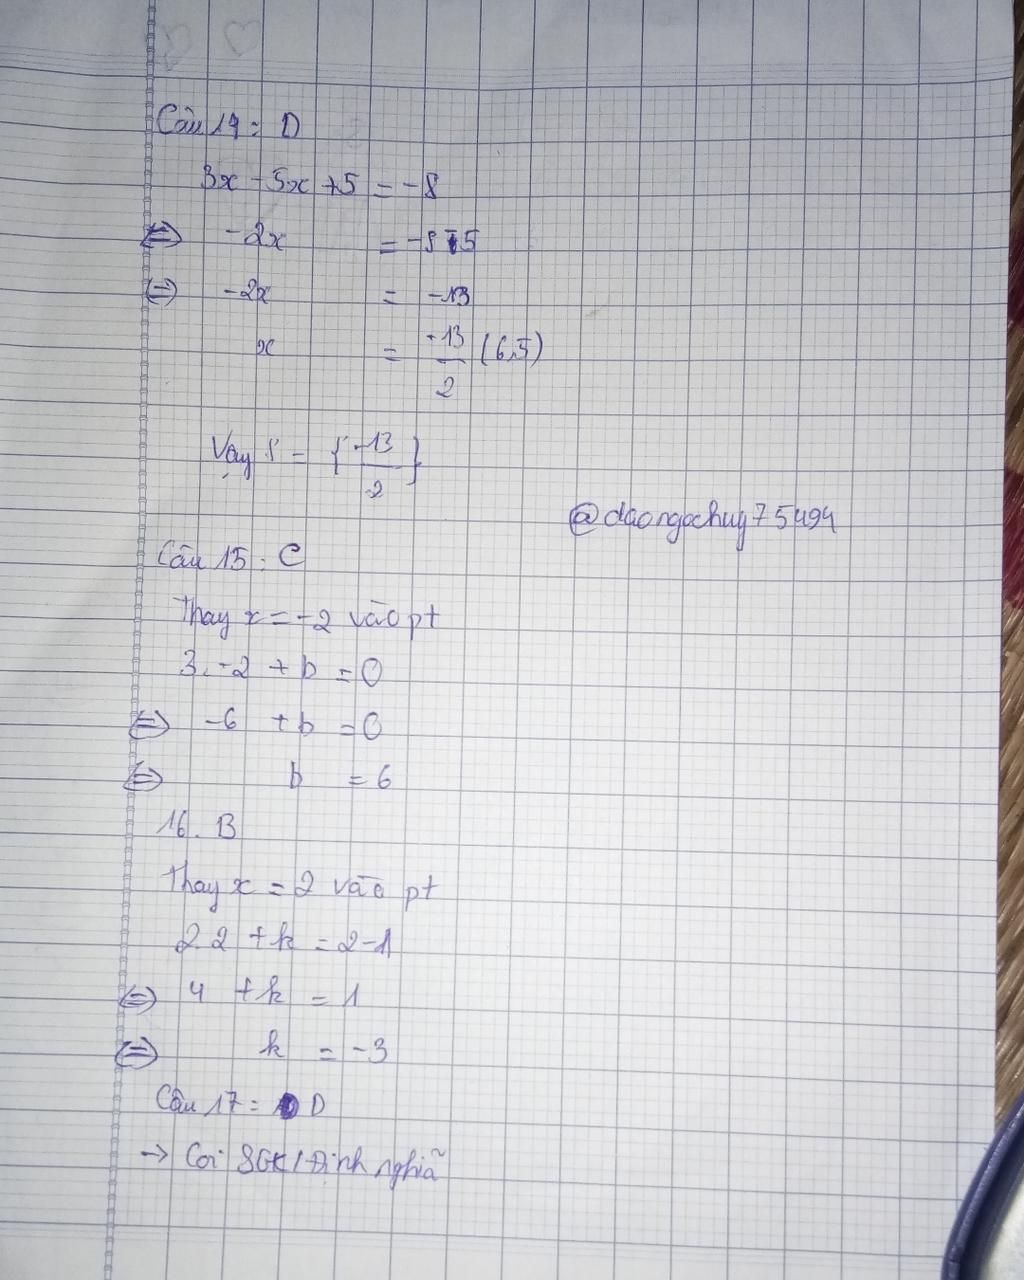 Câu 14: D
3x - 5x + 5 = -8
⇔ -2x = -8-5
⇔ -2x = -13
x = -13/2 (6,5)
Vậy S = {-13/2}
@daongochuy75494
Câu 15: C
Thay x = -2 vào pt
3.-2 + b = 0
⇔ -6 + b = 0
⇔ b = 6
16. B
Thay x = 2 vào pt
2.2 + k = 2-1
⇔ 4 + k = 1
⇔ k = -3
Câu 17: D
→ Coi SGK / Định nghiã